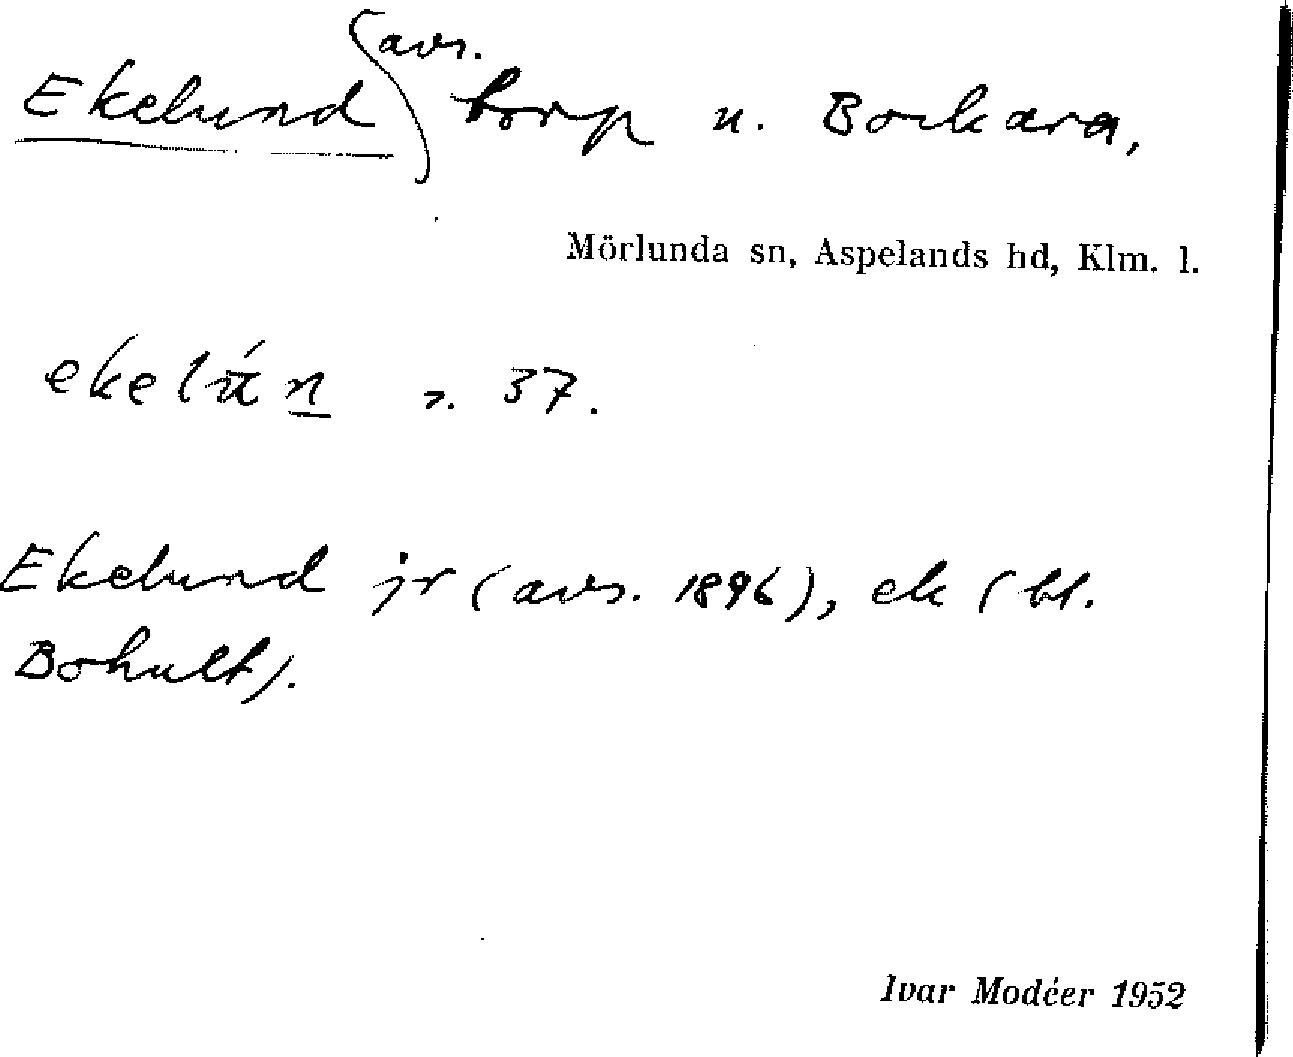 Ekelund avs. torp u. Bockara,
Mörlunda sn, Aspelands hd, Klm. l.
ekelún 37.
Ekelund jr (avs. 1896), ek (bl.
Bohult).
Ivar Modéer 1952